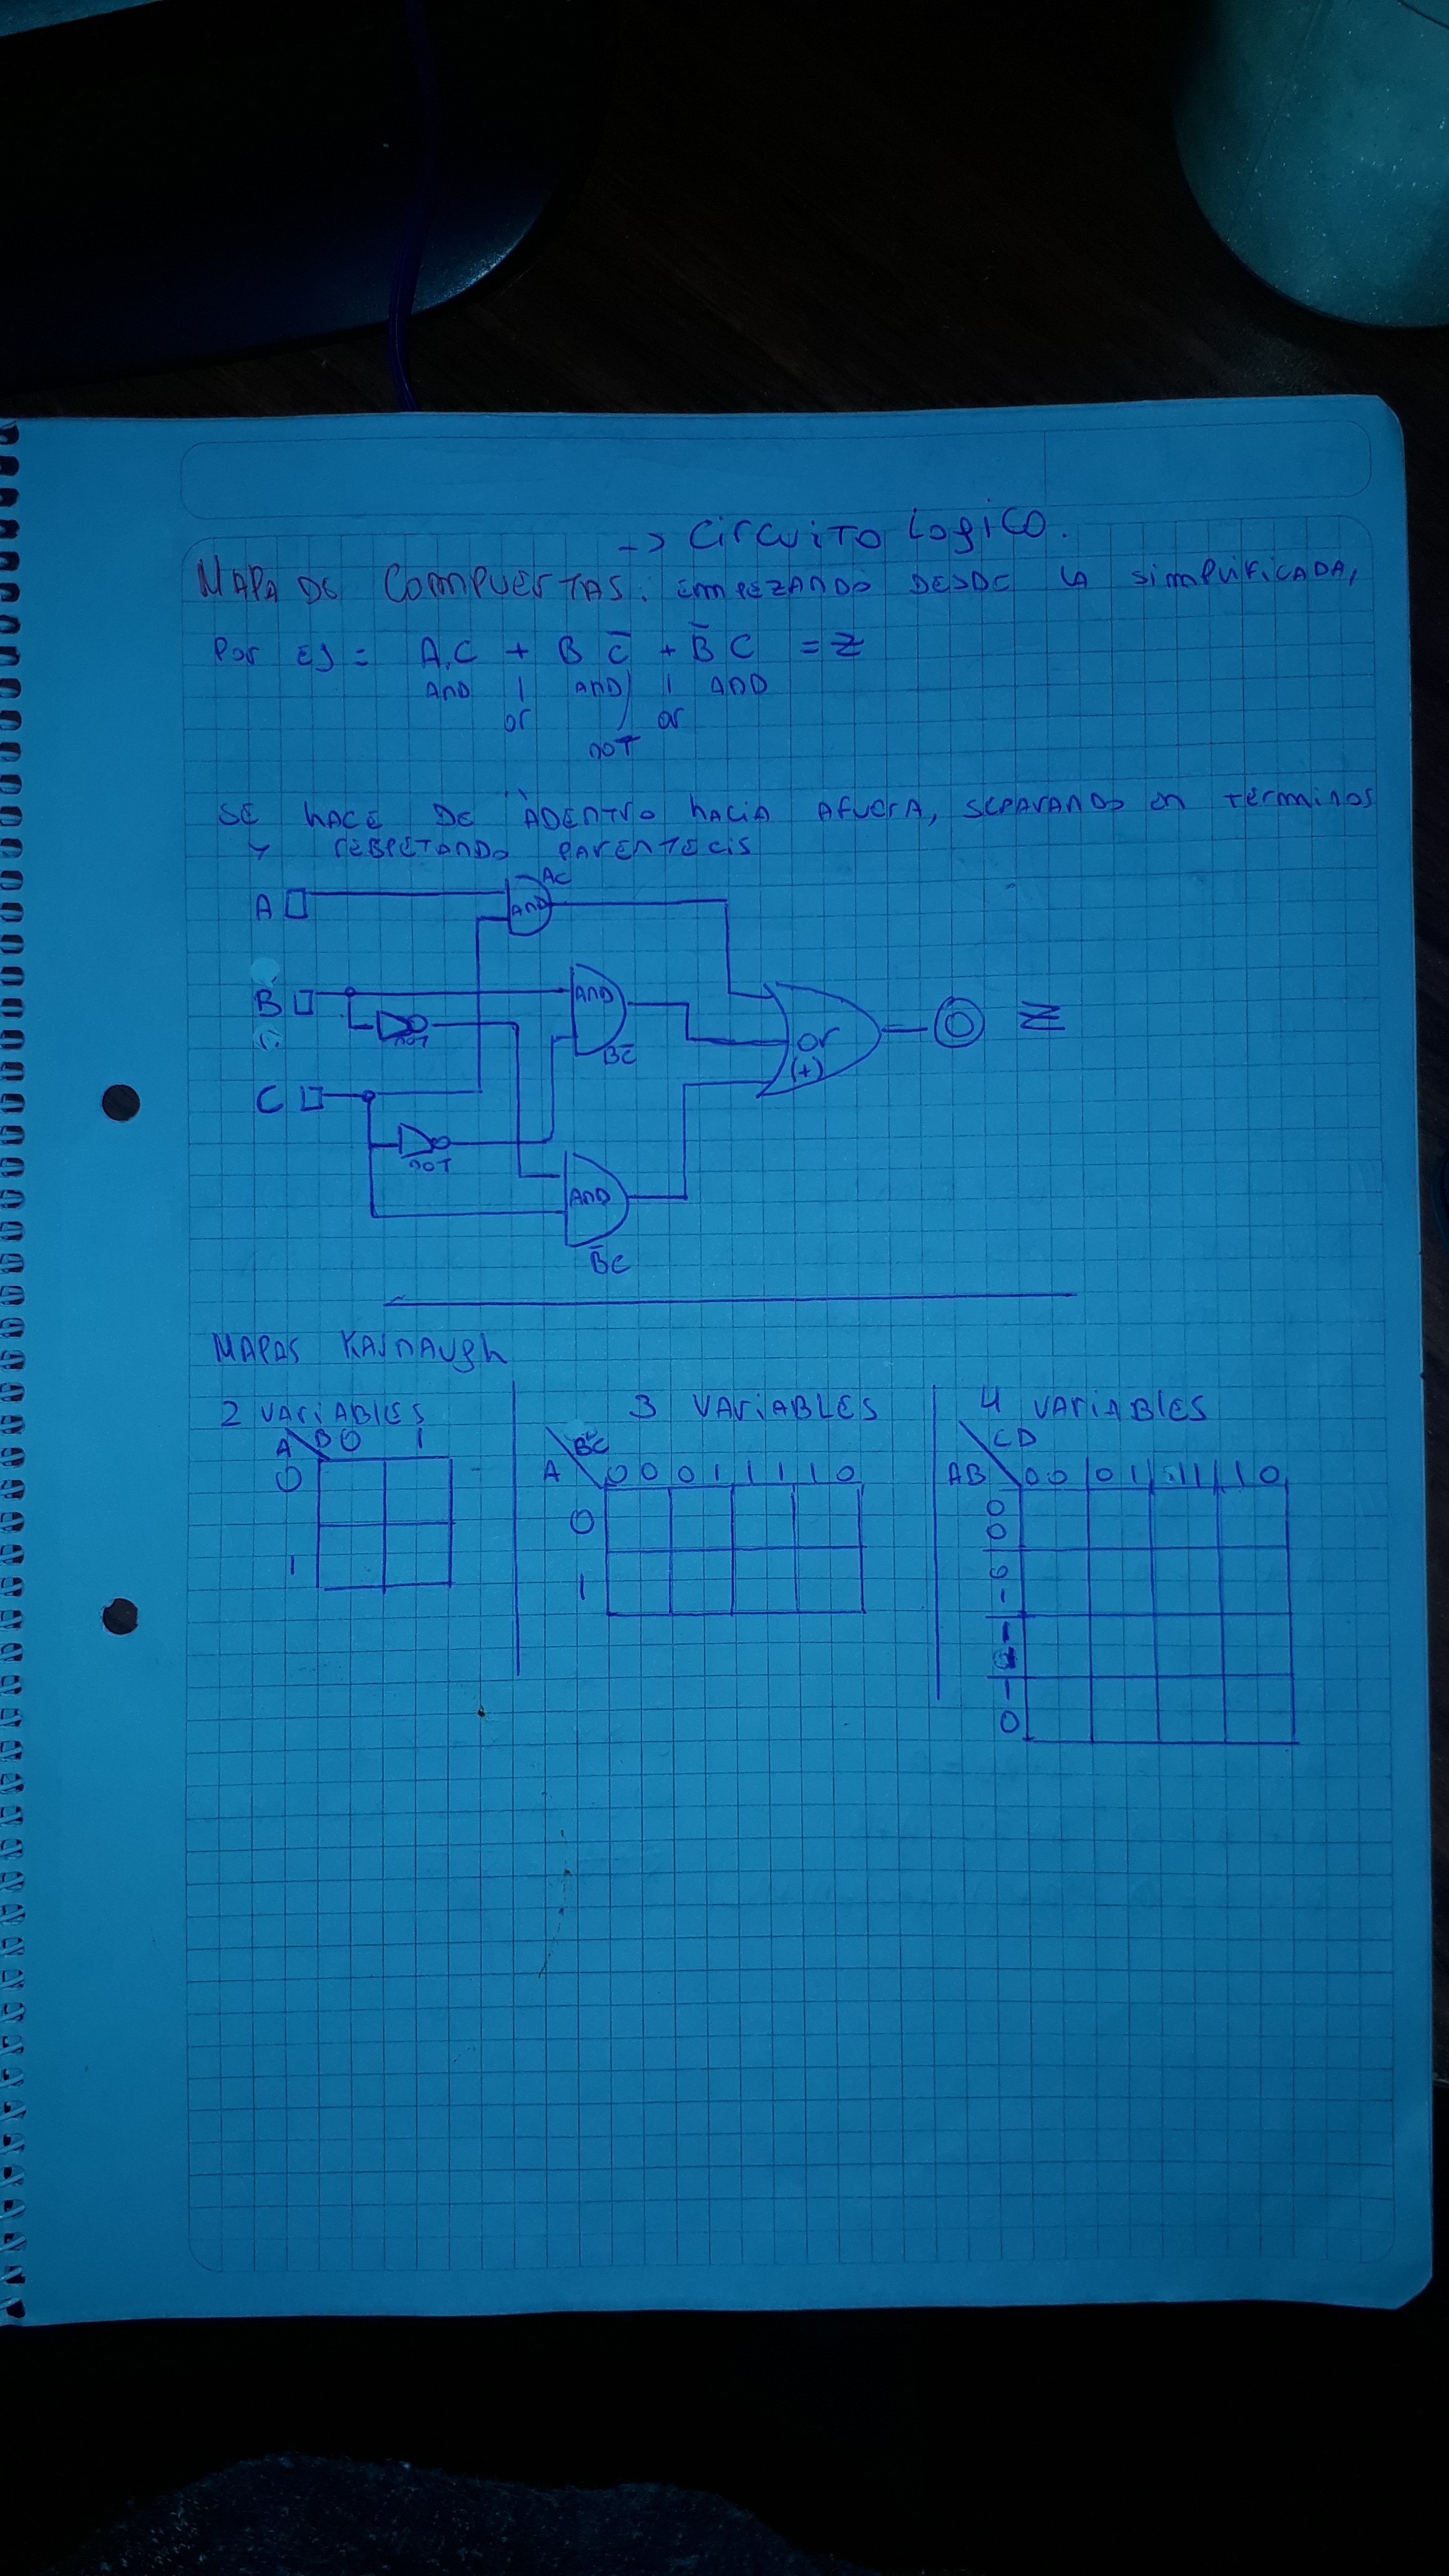 -> Circuito Logico.
MAPA DE COMPUERTAS. EMPEZANDO DESDE LA SIMPLIFICADA,
POR EJ = A.C + B C̅ + B̅ C = Z
AND | AND | AND
or or
not
SE HACE DE ADENTRO HACIA AFUERA, SEPARANDO EN TERMINOS
Y RESPETANDO PARENTECIS
AC
A AND
B AND
NOT BC̅
or
(+)
Z
C
NOT
AND
B̅C
MAPAS KARNAUGH
2 VARIABLES 3 VARIABLES 4 VARIABLES
A B 0 1
0
1
BC
A 00 01 11 10
0
1
CD
AB 00 01 11 10
00
01
1
10